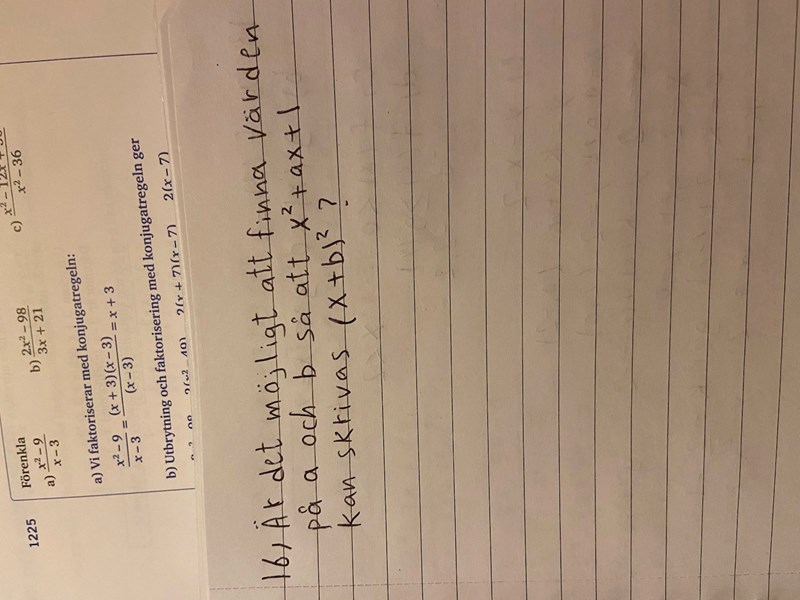 1225
Förenkla
a) x² − 9 / x − 3
b) 2x² − 98 / 3x + 21
c) x² − 12x + 36 / x² − 36
a) Vi faktoriserar med konjugatregeln:
x² − 9 / x − 3 = (x + 3)(x − 3) / (x − 3) = x + 3
b) Utbrytning och faktorisering med konjugatregeln ger
2(x + 7)(x − 7) 2(x − 7)
16, Är det möjligt att finna värden
på a och b så att x² + ax + 1
kan skrivas (x+b)² ?